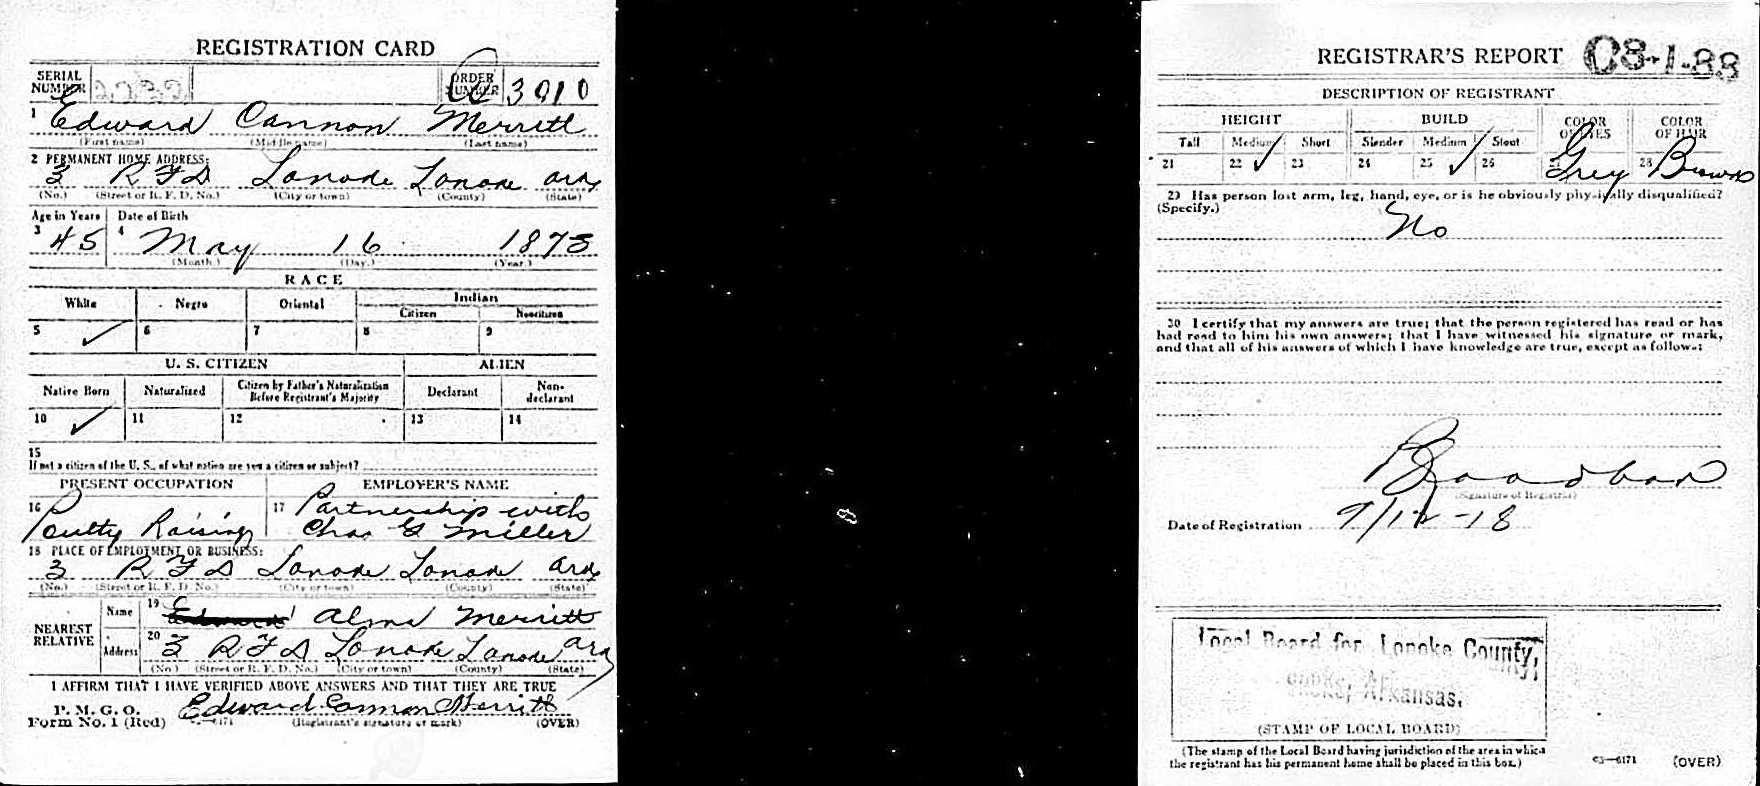 REGISTRATION CARD
SERIAL NUMBER 2232 ORDER NUMBER A 3910
1 Edward Cannon Merritt
(First name) (Middle name) (Last name)
2 PERMANENT HOME ADDRESS:
3 RFD Lonoke Lonoke Ark
(No.) (Street or R. F. D. No.) (City or town) (County) (State)
Age in Years Date of Birth
3 45 4 May 16 1873
(Month.) (Day.) (Year.)
RACE
White Negro Oriental Indian
Citizen Noncitizen
5 ✓ 6 7 8 9
U. S. CITIZEN ALIEN
Native Born Naturalized Citizen by Father's Naturalization Before Registrant's Majority Declarant Non-declarant
10 ✓ 11 12 13 14
15
If not a citizen of the U. S., of what nation are you a citizen or subject?
PRESENT OCCUPATION EMPLOYER'S NAME
16 Poultry Raising 17 Partnership with
Chas G Miller
18 PLACE OF EMPLOYMENT OR BUSINESS:
3 RFD Lonoke Lonoke Ark
(No.) (Street or R. F. D. No.) (City or town) (County) (State)
NEAREST RELATIVE
Name 19 Alma Merritt
Address 20 3 RFD Lonoke Lonoke Ark
(No.) (Street or R. F. D. No.) (City or town) (County) (State)
I AFFIRM THAT I HAVE VERIFIED ABOVE ANSWERS AND THAT THEY ARE TRUE
P. M. G. O.
Form No. 1 (Red) Edward Cannon Merritt
(Registrant's signature or mark) (OVER)
REGISTRAR'S REPORT
DESCRIPTION OF REGISTRANT
HEIGHT BUILD COLOR OF EYES COLOR OF HAIR
Tall Medium Short Slender Medium Stout
21 22 ✓ 23 24 25 ✓ 26 27 Grey 28 Brown
29 Has person lost arm, leg, hand, eye, or is he obviously physically disqualified?
(Specify.)
No
30 I certify that my answers are true; that the person registered has read or has
had read to him his own answers; that I have witnessed his signature or mark,
and that all of his answers of which I have knowledge are true, except as follows:
(Signature of Registrar)
Date of Registration 9/12-18
Local Board for Lonoke County,
Lonoke, Arkansas.
(STAMP OF LOCAL BOARD)
(The stamp of the Local Board having jurisdiction of the area in which
the registrant has his permanent home shall be placed in this box.)
03—6171 (OVER)